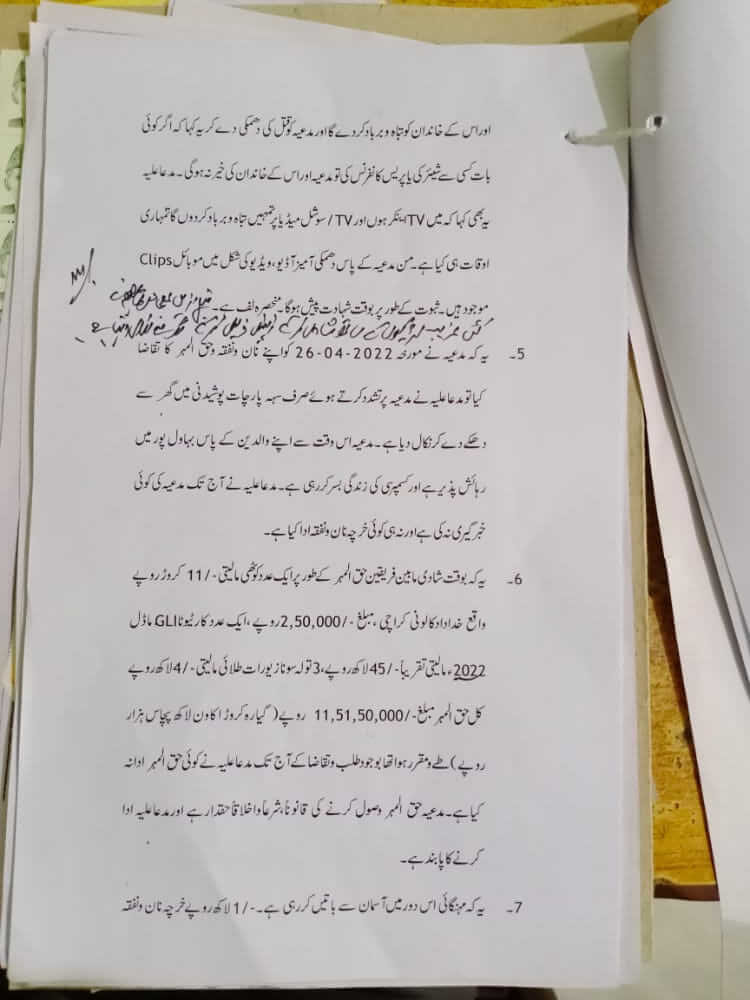 اور اس کے خاندان کو تباہ و برباد کر دے گا اور مدعیہ کو قتل کی دھمکی دے کر یہ کہا کہ اگر کوئی
بات کسی سے شیئر کی یا پریس کانفرنس کی تو مدعیہ اور اس کے خاندان کی خیر نہ ہوگی۔ مدعاعلیہ
یہ بھی کہا کہ میں TV اینکر ہوں اور TV / سوشل میڈیا پر تمہیں تباہ و برباد کردوں گا تمہاری
اوقات ہی کیا ہے۔ من مدعیہ کے پاس دھمکی آمیز آڈیو، ویڈیو کی شکل میں موبائل Clips
موجود ہیں۔ ثبوت کے طور پر بوقت شہادت پیش ہوگا۔ منحصرہ لف ہے۔
5۔ یہ کہ مدعیہ نے مورخہ 26-04-2022 کو اپنے نان و نفقہ و حق المہر کا تقاضا
کیا تو مدعاعلیہ نے مدعیہ پر تشدد کرتے ہوئے صرف سہہ پارچات پوشیدنی میں گھر سے
دھکے دے کر نکال دیا ہے۔ مدعیہ اس وقت سے اپنے والدین کے پاس بہاول پور میں
رہائش پذیر ہے اور کسمپرسی کی زندگی بسر کر رہی ہے۔ مدعاعلیہ نے آج تک مدعیہ کی کوئی
خبر گیری نہ کی ہے اور نہ ہی کوئی خرچہ نان و نفقہ ادا کیا ہے۔
6۔ یہ کہ بوقت شادی مابین فریقین حق المہر کے طور پر ایک عدد کوٹھی مالیتی -/11 کروڑ روپے
واقع خداداد کالونی کراچی، مبلغ -/2,50,000 روپے، ایک عدد کار ٹیوٹا GLI ماڈل
2022ء مالیتی تقریباً -/45 لاکھ روپے، 3 تولہ سونا زیورات طلائی مالیتی -/4 لاکھ روپے
کل حق المہر مبلغ -/11,51,50,000 روپے (گیارہ کروڑ اکاون لاکھ پچاس ہزار
روپے) طے و مقرر ہوا تھا باوجود طلب و تقاضا کے آج تک مدعاعلیہ نے کوئی حق المہر ادا نہ
کیا ہے۔ مدعیہ حق المہر وصول کرنے کی قانوناً، شرعاً و اخلاقاً حقدار ہے اور مدعاعلیہ ادا
کرنے کا پابند ہے۔
7۔ یہ کہ مہنگائی اس دور میں آسمان سے باتیں کر رہی ہے۔ -/1 لاکھ روپے خرچہ نان و نفقہ